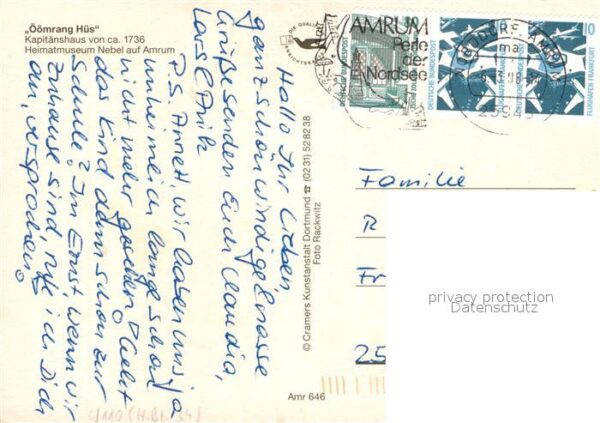 „Öömrang Hüs"
Kapitänshaus von ca. 1736
Heimatmuseum Nebel auf Amrum
Hallo Ihr Lieben,
ganz schön windige & nasse
Grüße senden Euch Claudia,
Lars & Dirk
P.S. Annett, wir haben uns ja
unheimlich lange schon
nicht mehr gesehen! Geht
das Kind denn schon zur
Schule? Im Ernst, wenn wir
Zuhause sind rufe ich Dich
an, versprochen!
© Cramers Kunstanstalt Dortmund ☎ (0231) 52 82 38
Foto Rackwitz
Amr 646
AMRUM
Perle
der
Nordsee
DEUTSCHE BUNDESPOST
FLUGHAFEN FRANKFURT
DEUTSCHE BUNDESPOST
FLUGHAFEN FRANKFURT
10
Familie
R
Fr
25
privacy protection
Datenschutz